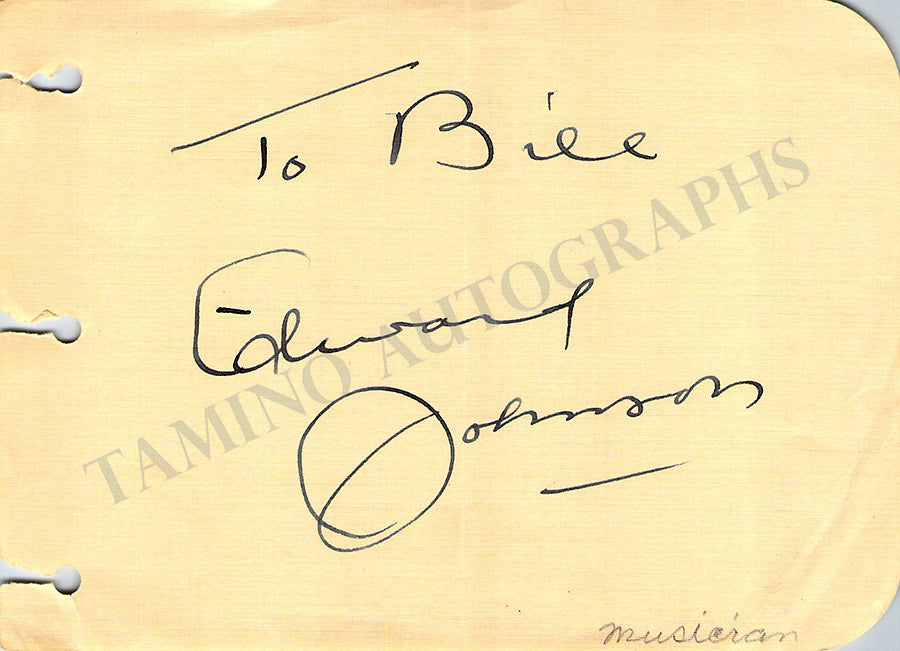 To Bill
Edward
Johnson
TAMINO AUTOGRAPHS
musician